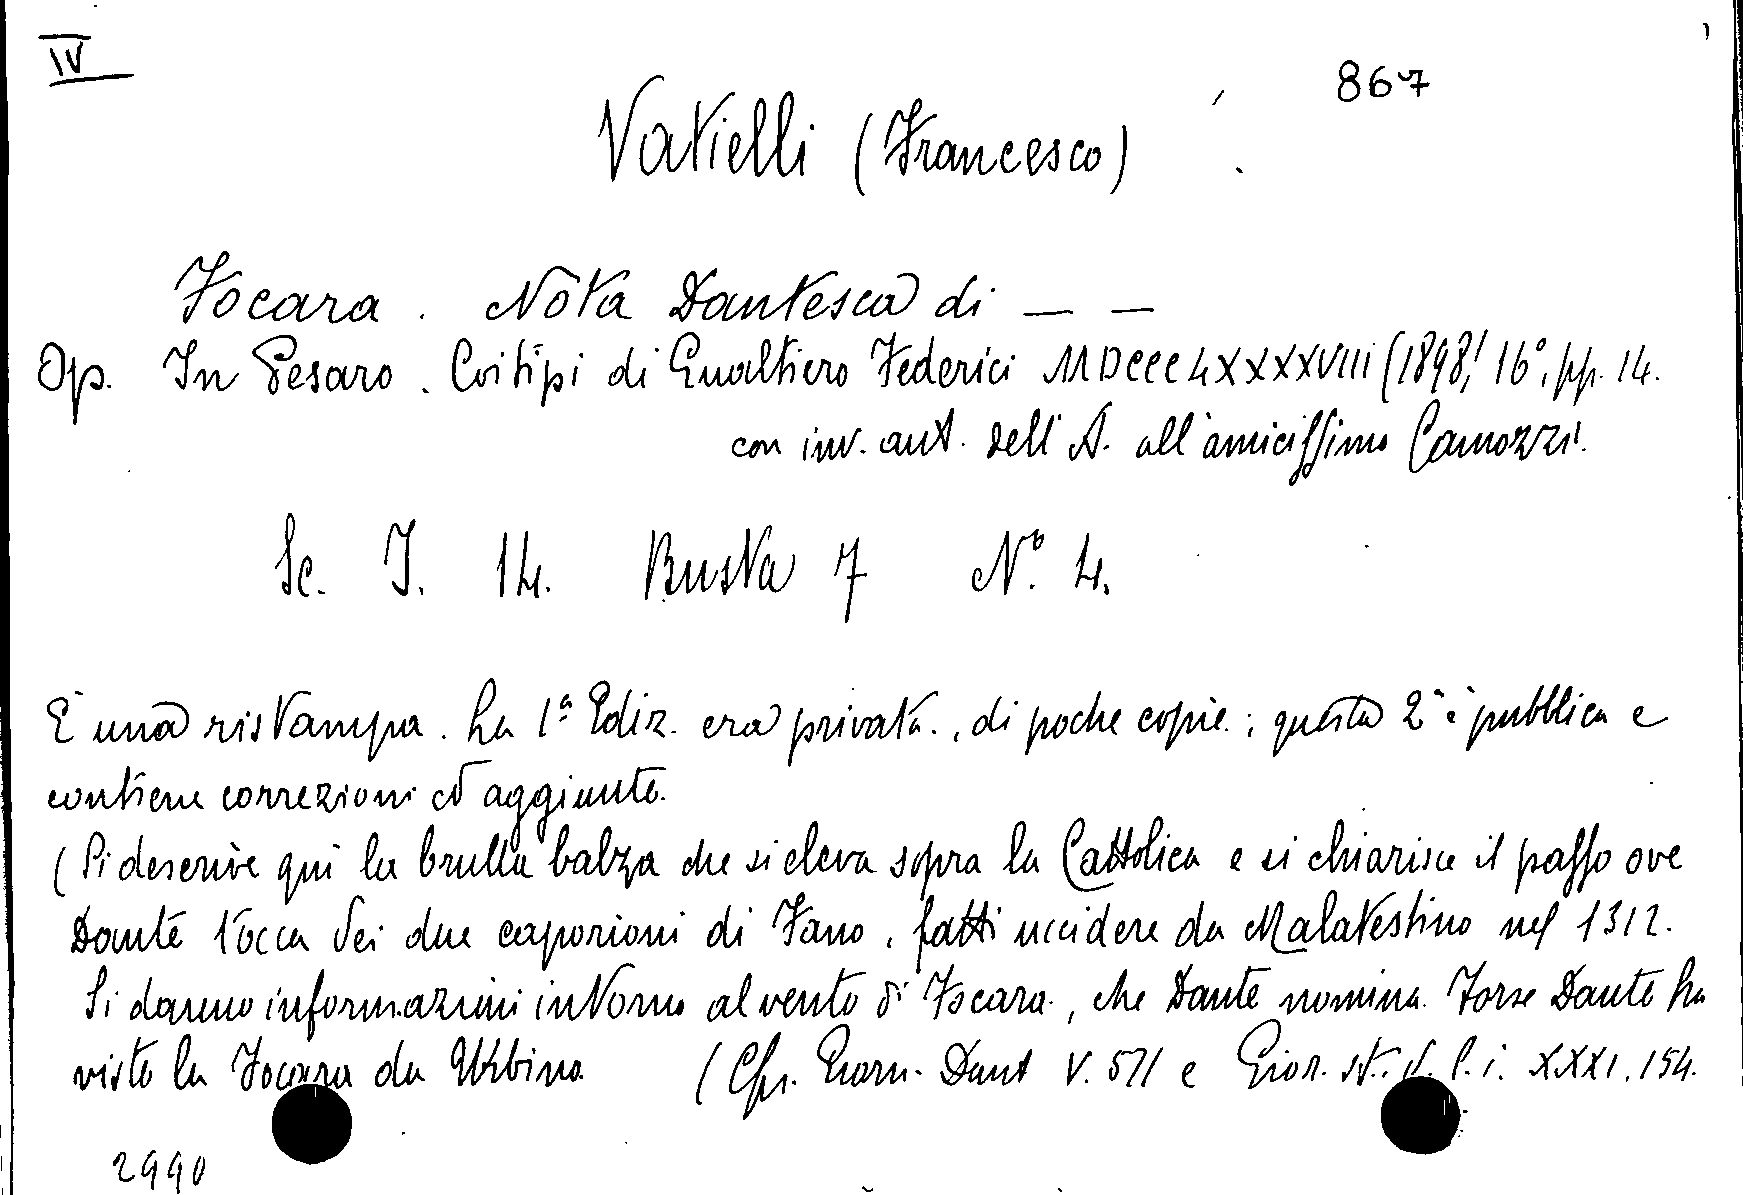 IV
867
Vatielli (Francesco)
Focara. Nota Dantesca di — —
Op. In Pesaro. Coi tipi di Gualtiero Federici MDCCCLXXXXVIII (1898) 16°, pp. 14.
con inv. aut. dell'A. all'amicissimo Camozzi.
Sc. I. 14. Busta 7 N.° 4.
È una ristampa. La 1ª Ediz. era privata, di poche copie; questa 2ª è pubblica e
contiene correzioni ed aggiunte.
(Si descrive qui la brulla balza che si eleva sopra la Cattolica e si chiarisce il passo ove
Dante tocca dei due caporioni di Fano, fatti uccidere da Malatestino nel 1312.
Si danno informazioni intorno al vento di Focara, che Dante nomina. Forse Dante ha
visto la Focara da Urbino (Cfr. Giorn. Dant V. 571 e Gior. st. d. l. i. XXXI. 154.
2990